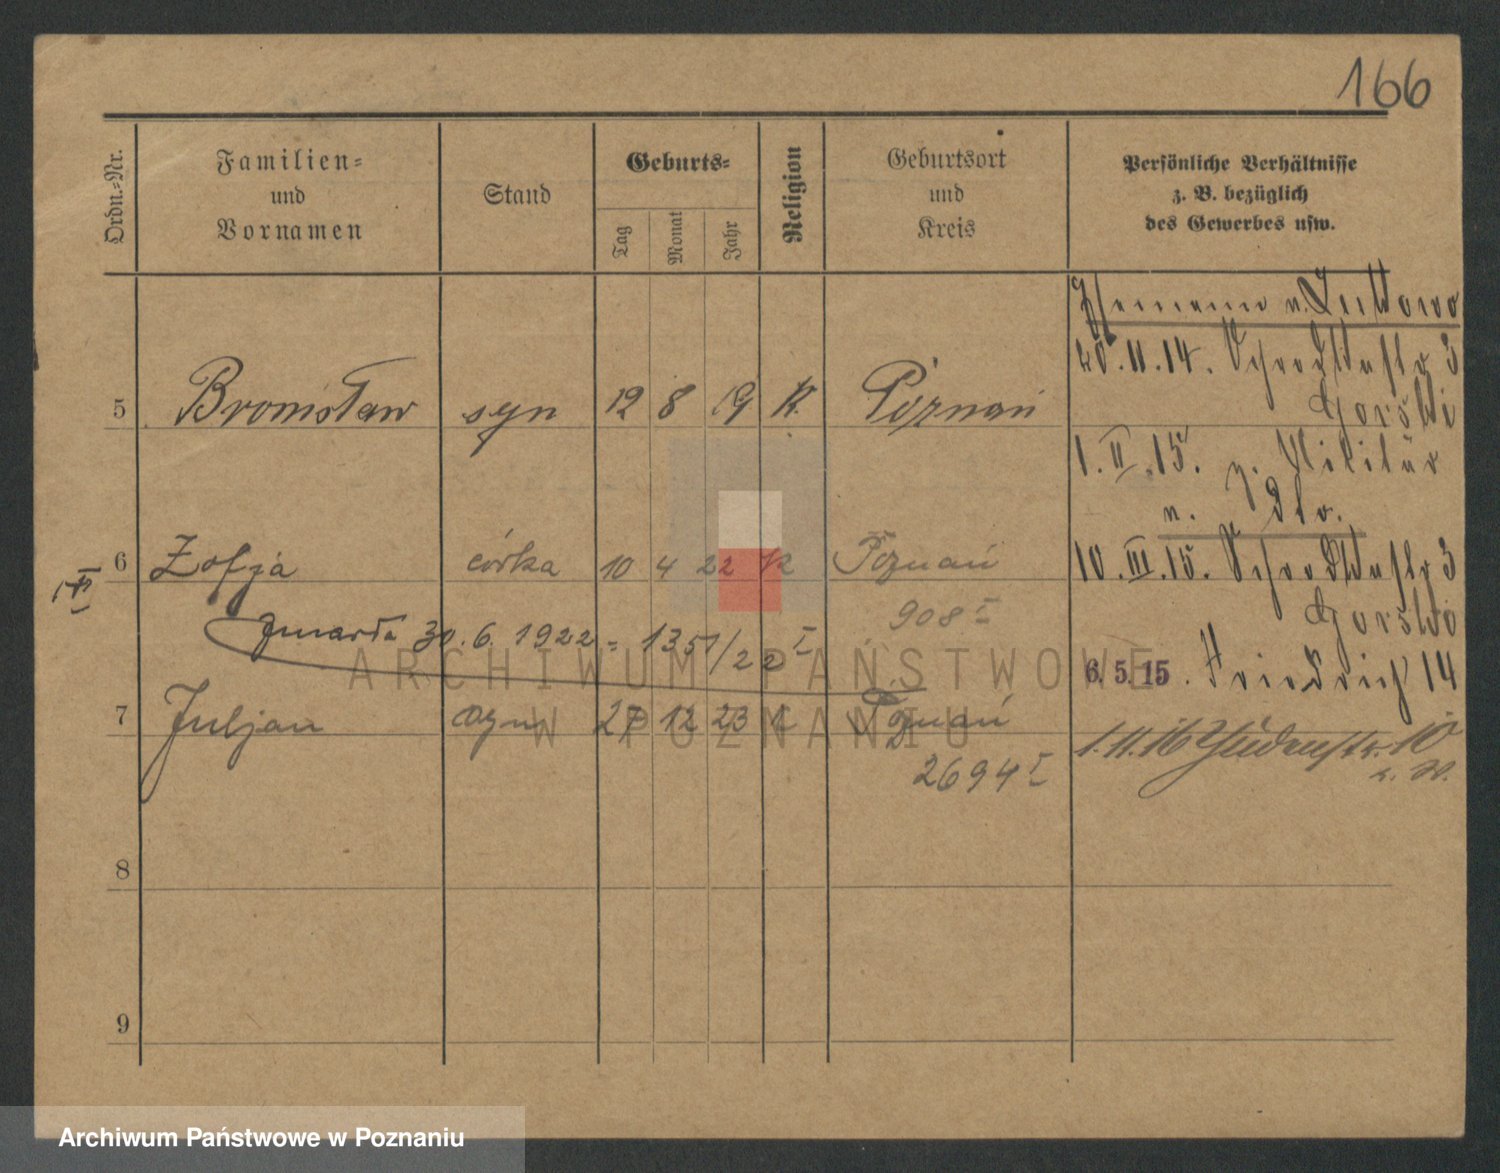 166
Ordn.-Nr.
Familien-
und
Vornamen
Stand
Geburts-
Tag
Monat
Jahr
Religion
Geburtsort
und
Kreis
Persönliche Verhältnisse
z. B. bezüglich
des Gewerbes usw.
5 Bronisław syn 12 8 19 K. Poznań
6 Zofja córka 10 4 22 K Poznań
908 I
Zmarła 30.6.1922 = 1351/22 I
7 Juljan syn 27 12 23 K Poznań
2694 I
8
9
20.11.14. Schrodkastr 3
Gorski
1.II.15. z. Militär
n.
10.III.15. Schrodkastr 3
Gorski
6.5.15. Friedrich 14
1.11.16 10
ARCHIWUM PAŃSTWOWE
W POZNANIU
Archiwum Państwowe w Poznaniu